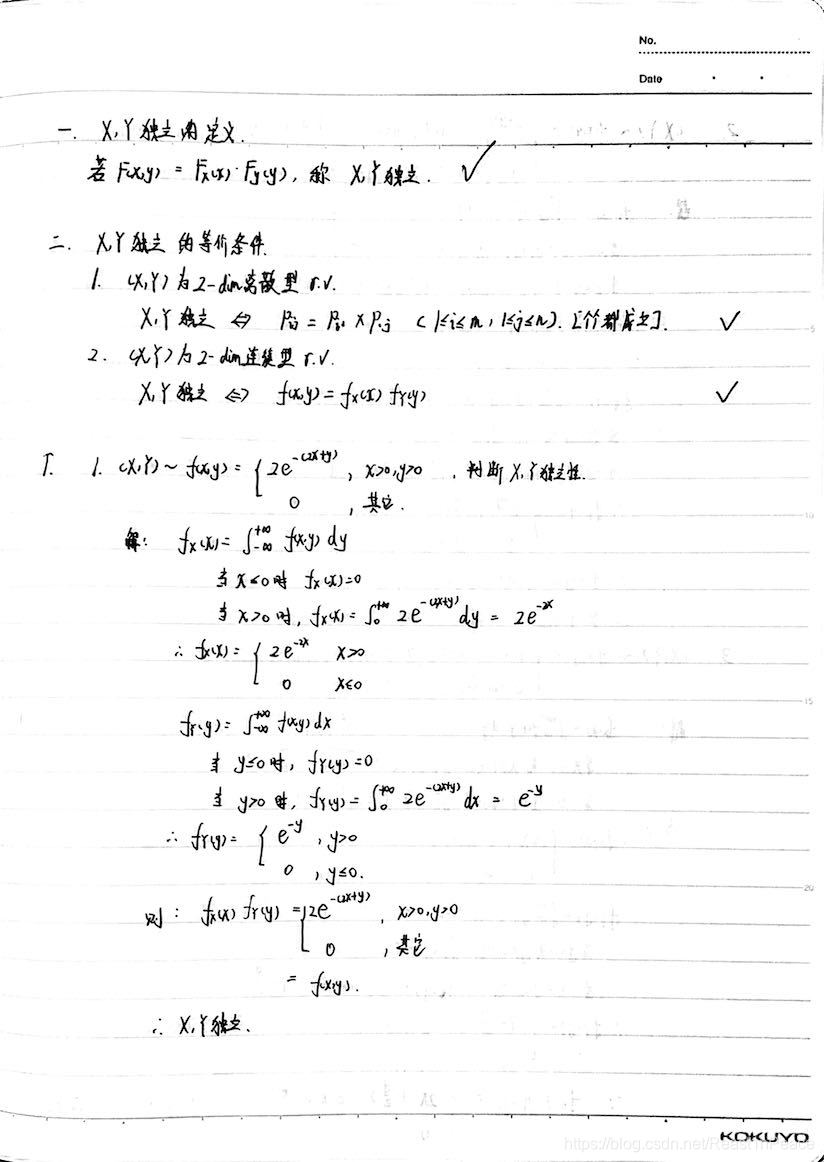 No.
Date
一. X,Y独立的定义.
若 F(x,y) = Fx(x)·Fy(y), 称 X,Y独立. ✓
二. X,Y独立 的等价条件.
1. (X,Y)为2-dim离散型 r.v.
X,Y独立 ⇔ Pij = Pi. × P.j (1≤i≤m, 1≤j≤n). [个个都成立]. ✓
2. (X,Y)为2-dim连续型 r.v.
X,Y独立 ⇔ f(x,y) = fX(x) fY(y) ✓
5
T. 1. (X,Y) ~ f(x,y) = { 2e^-(2x+y), x>0,y>0 , 判断 X,Y独立性.
0 , 其它.
10
解: fX(x) = ∫_-∞^+∞ f(x,y) dy
当 x≤0时 fX(x)=0
当 x>0时, fX(x) = ∫_0^+∞ 2e^-(2x+y) dy = 2e^-2x
∴ fX(x) = { 2e^-2x x>0
0 x≤0
15
fY(y) = ∫_-∞^+∞ f(x,y) dx
当 y≤0时, fY(y)=0
当 y>0时, fY(y) = ∫_0^+∞ 2e^-(2x+y) dx = e^-y
∴ fY(y) = { e^-y , y>0
0 , y≤0.
20
则: fX(x) fY(y) = { 2e^-(2x+y) , x>0,y>0
0 , 其它
= f(x,y).
∴ X,Y独立.
KOKUYO